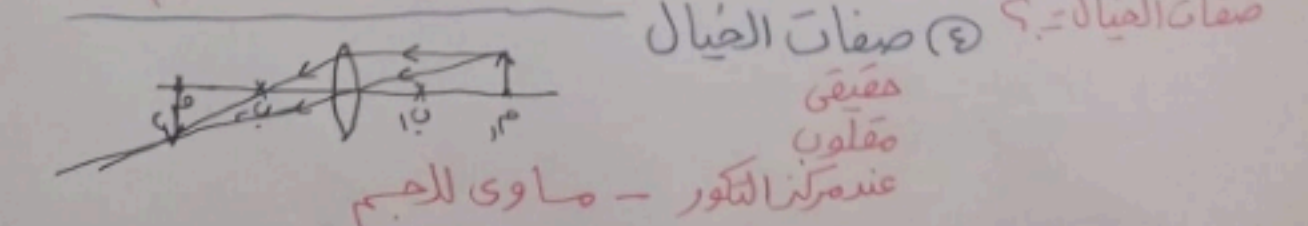 صفات الخيال = ؟
④ صفات الخيال
حقيقي
مقلوب
عند مركز التكور – مساوي للجسم
م١
ب١
ب٢
م٢